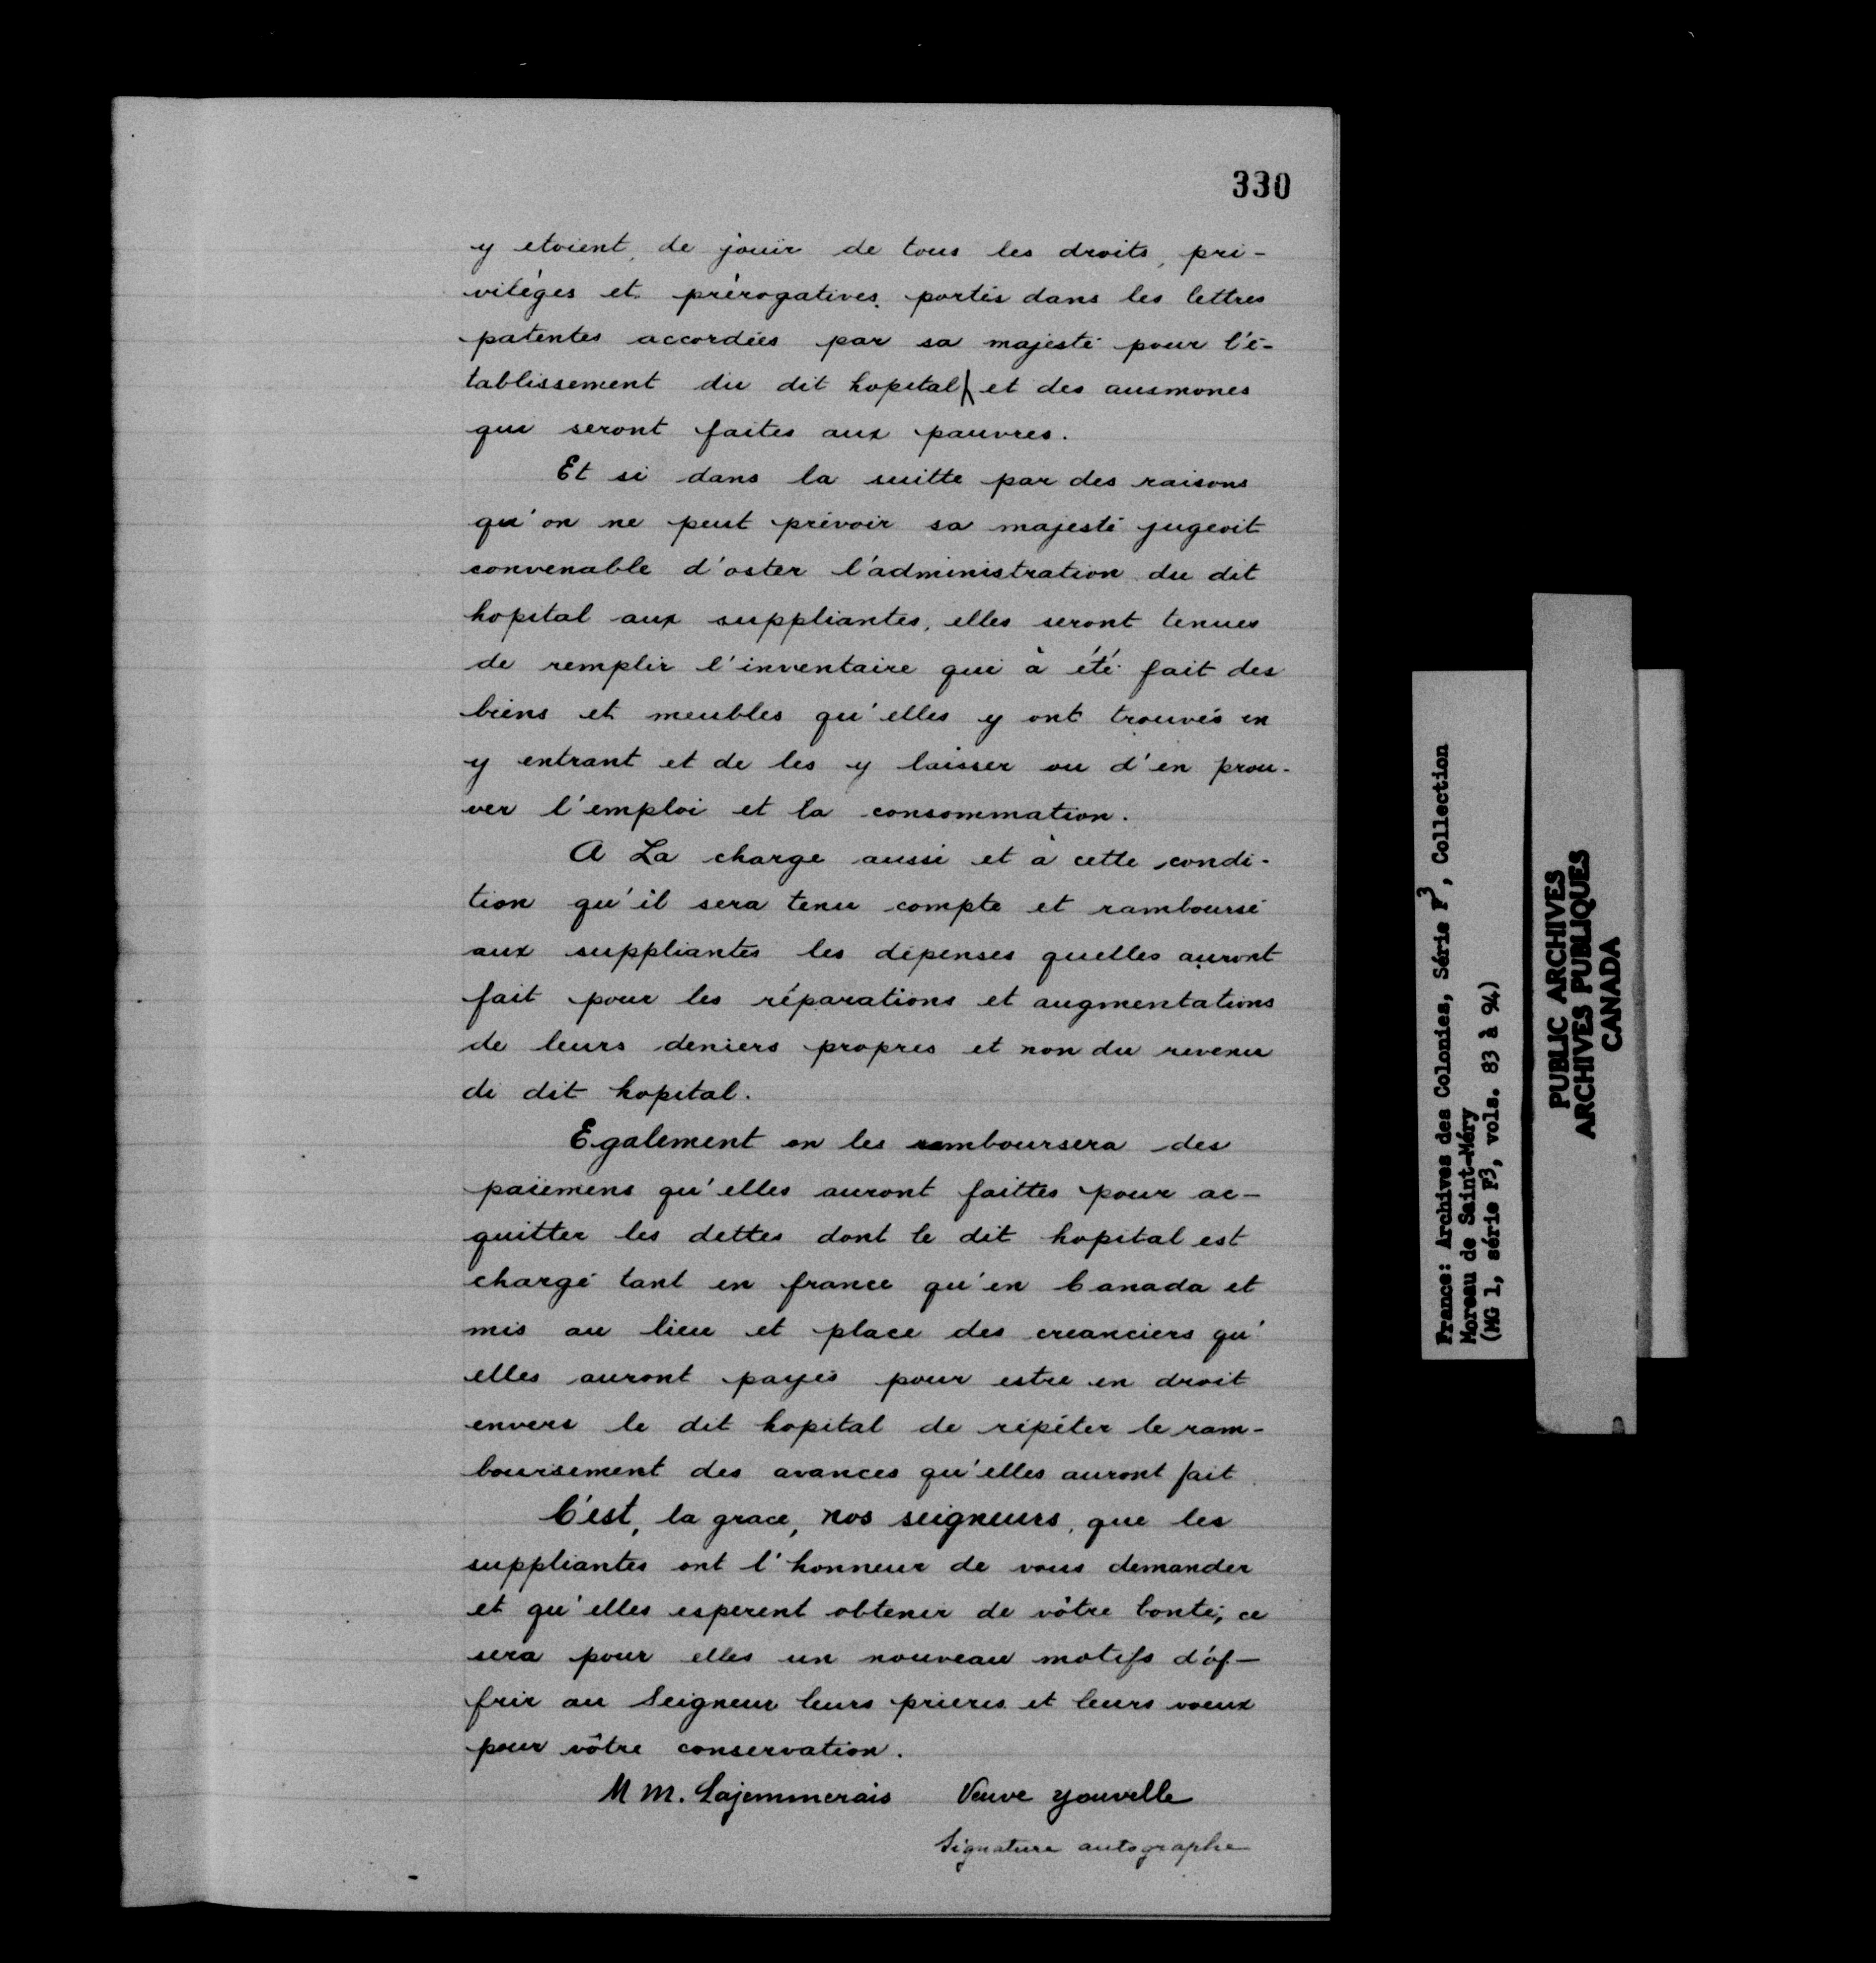 330
y etoient, de jouir de tous les droits, pri-
vilèges et prérogatives, portés dans les lettres
patentes accordées par sa majesté pour l'é-
tablissement du dit hopital et des ausmones
qui seront faites aux pauvres.
Et si dans la suitte par des raisons
qu'on ne peut prévoir sa majesté jugeoit
convenable d'oster l'administration du dit
hopital aux suppliantes, elles seront tenues
de remplir l'inventaire qui à été fait des
biens et meubles qu'elles y ont trouvés en
y entrant et de les y laisser ou d'en prou-
ver l'emploi et la consommation.
A La charge aussi et à cette condi-
tion qu'il sera tenu compte et remboursé
aux suppliantes les dépenses quelles auront
fait pour les réparations et augmentations
de leurs deniers propres et non du revenu
di dit hopital.
Egalement on les remboursera des
paiemens qu'elles auront faittes pour ac-
quitter les dettes dont le dit hopital est
chargé tant en france qu'en Canada et
mis au lieu et place des creanciers qu'
elles auront payés pour estre en droit
envers le dit hopital de répéter le ram-
boursement des avances qu'elles auront fait.
C'est, la grace, nos seigneurs, que les
suppliantes ont l'honneur de vous demander
et qu'elles esperent obtenir de vôtre bonté; ce
sera pour elles un nouveau motifs d'of-
frir au Seigneur leurs prieres et leurs voeux
pour vôtre conservation.
M M. Lajemmerais Veuve youvelle
Signature autographe
France: Archives des Colonies, Série F3, Collection
Moreau de Saint-Méry
(MG 1, série F3, vols. 83 à 94)
PUBLIC ARCHIVES
ARCHIVES PUBLIQUES
CANADA